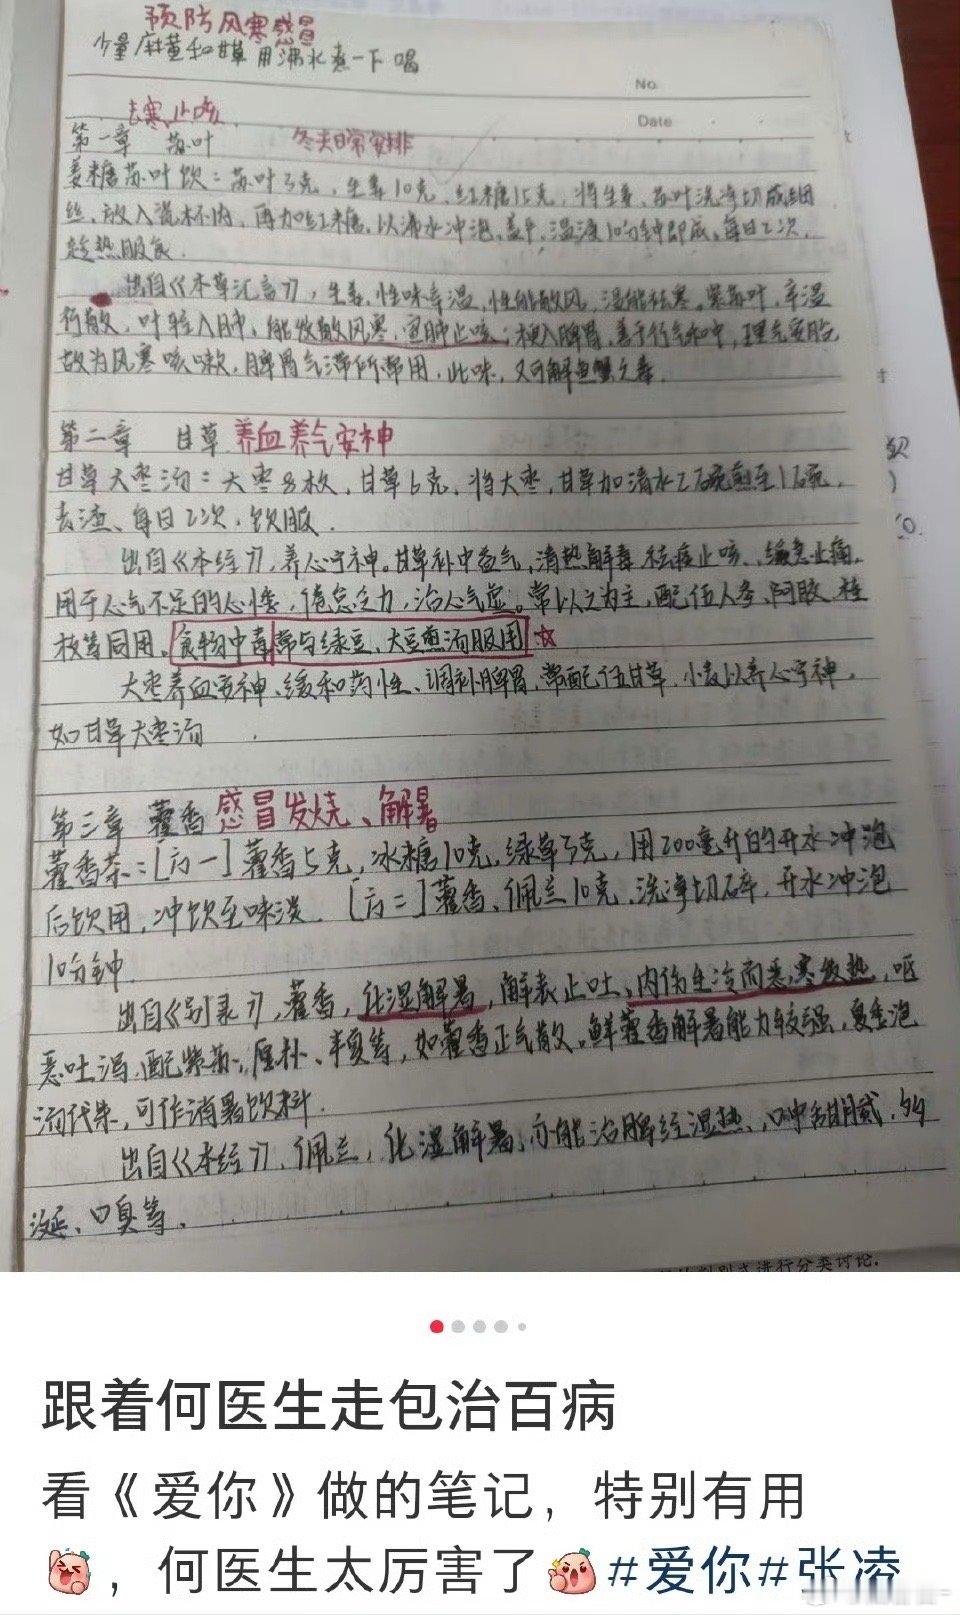 预防风寒感冒
少量麻黄和甘草用沸水煮一下喝
No.
Date
去寒、止咳
第一章 苏叶 冬天日常安排
姜糖苏叶饮：苏叶3克，生姜10克，红糖15克，将生姜、苏叶洗净切成细
丝，放入瓷杯内，再加红糖，以沸水冲泡，盖上，温浸10分钟即成，每日2次，
趁热服食.
出自《本草汇言》，生姜，性味辛温，性能散风，温能祛寒。紫苏叶，辛温
行散，叶轻入肺，能发散风寒，宣肺止咳；梗入脾胃，善于行气和中，理气安胎
故为风寒咳嗽，脾胃气滞所常用，此味，又可解鱼蟹之毒.
第二章 甘草 养血养气安神
甘草大枣汤：大枣8枚，甘草6克，将大枣，甘草加清水2碗煎至1碗，
去渣、每日2次，饮服.
出自《本经》，养心宁神。甘草补中益气，清热解毒 祛痰止咳、缓急止痛，
用于心气不足的心悸，倦怠乏力，治心气虚。常以之为主，配伍人参、阿胶、桂
枝等同用。食物中毒常与绿豆、大豆煎汤服用☆
大枣养血安神、缓和药性、调补脾胃，常配伍甘草，小麦以养心宁神，
如甘草大枣汤.
第三章 藿香 感冒发烧、解暑
藿香茶：[方一]藿香5克，冰糖10克，绿草3克，用200毫升的开水冲泡
后饮用，冲饮至味淡. [方二]藿香、佩兰10克，洗净切碎，开水冲泡
10分钟.
出自《别录》，藿香，化湿解暑，解表止吐、内伤生冷而恶寒发热，呕
恶吐泻，配紫苏、厚朴、半夏等，如藿香正气散。鲜藿香解暑能力较强，夏季泡
汤代茶，可作消暑饮料.
出自《本经》，佩兰，化湿解暑，亦能治脾经湿热，口中甜腻，多
涎、口臭等.
进行分类讨论.
跟着何医生走包治百病
看《爱你》做的笔记，特别有用
，何医生太厉害了#爱你#张凌